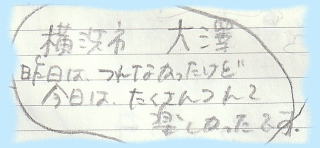 横浜市 大澤
昨日は、つれなかったけど
今日は、たくさんつれて
楽しかったです。